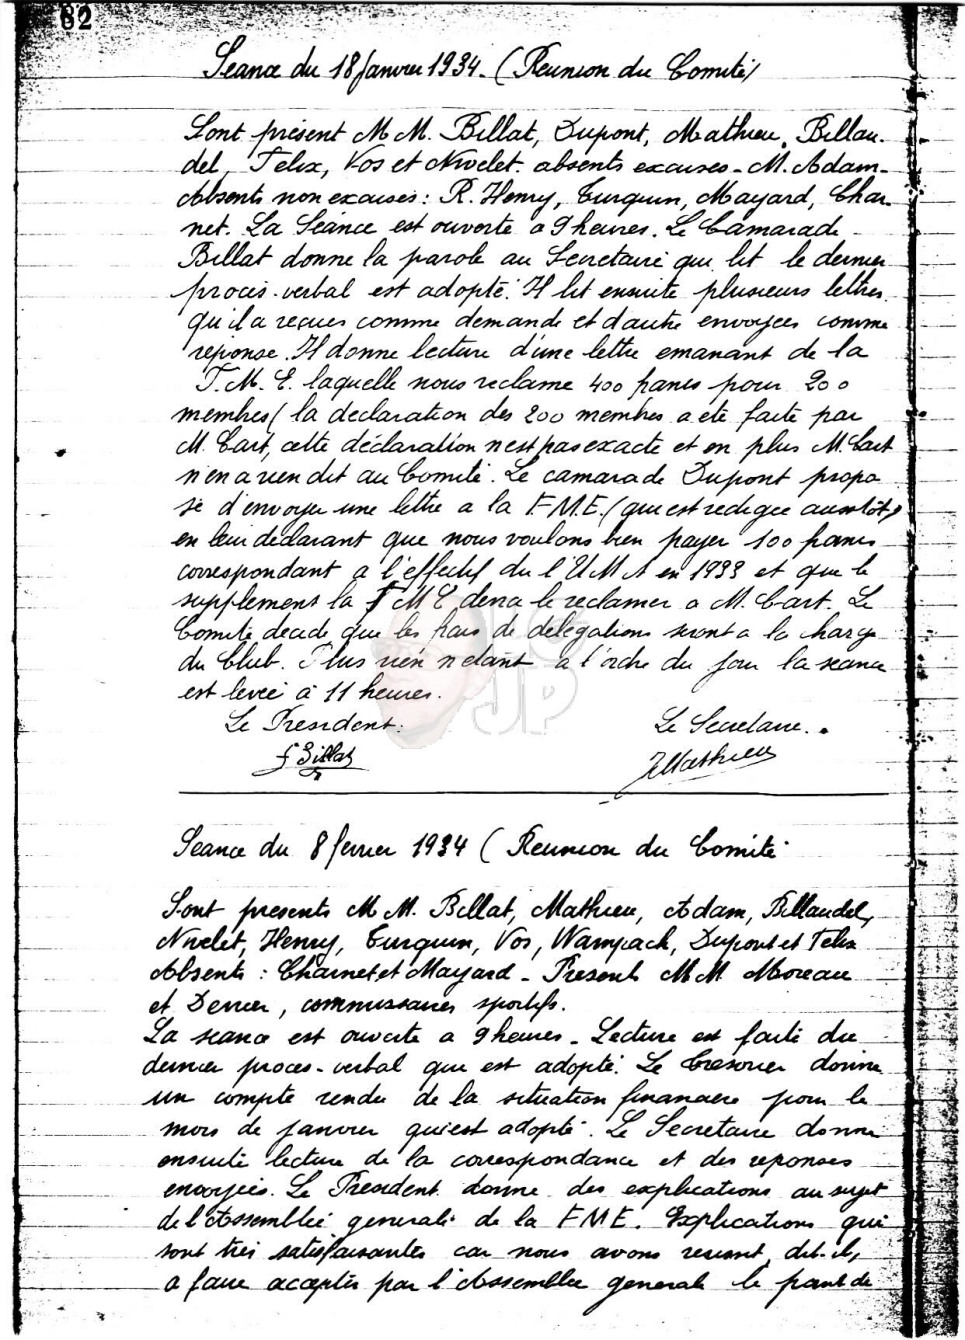 82
Séance du 18 Janvier 1934. (Réunion du Comité)
Sont présent M M. Billat, Dupont, Mathieu, Billau-
del, Felix, Vos et Nivelet. absents excusés - M. Adam -
Absents non excusés : R. Henry, Turquin, Mayard, Char-
net. La Séance est ouverte a 9 heures. Le Camarade
Billat donne la parole au Secretaire qui lit le dernier
procès-verbal est adopté. Il lit ensuite plusieurs lettres
qu'il a reçues comme demande et d'autre envoyées comme
réponse. Il donne lecture d'une lettre emanant de la
F. M. E. laquelle nous reclame 400 francs pour 200
membres ( la declaration des 200 membres a été faite par
M. Cart, cette déclaration n'est pas exacte et en plus M. Cart
n'en a rien dit au Comité. Le camarade Dupont propo
se d'envoyer une lettre a la F.M.E. (qui est redigée aussitôt)
en leur déclarant que nous voulons bien payer 100 francs
correspondant a l'effectif de l'UMA en 1933 et que le
supplement la F M E devra le reclamer a M. Cart. Le
Comité decide que les frais de délégations seront a la charge
du Club. Plus rien n'etant a l'ordre du jour la seance
est levée à 11 heures.
Le President : Le Secretaire.
f Billat JMathieu
Seance du 8 fevrier 1934 ( Reunion du Comité
Sont presents M M. Billat, Mathieu, Adam, Billaudel,
Nivelet, Henry, Turquin, Vos, Wampach, Dupont et Felix
Absents : Charnet et Mayard - Present M M Moreau
et Denier, commissaires sportifs.
La seance est ouverte a 9 heures - Lecture est faite du
dernier proces-verbal qui est adopté. Le tresorier donne
un compte rendu de la situation financiere pour le
mois de janvier qui est adopté. Le Secretaire donne
ensuite lecture de la correspondance et des reponses
envoyées. Le President donne des explications au sujet
de l'Assemblée generale de la F M E. Explications qui
sont très satisfaisantes car nous avons reussit, dit-il,
a faire accepter par l'Assemblée generale le point de